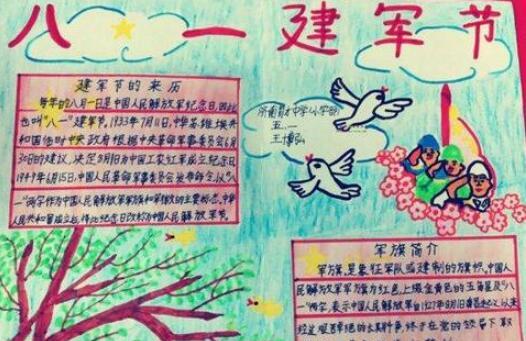 八一建军节
建军节的来历
每年的八月一日是中国人民解放军纪念日,因此
也叫“八一”建军节。1933年7月11日,中华苏维埃共
和国临时中央政府根据中央革命军事委员会6月
30日的建议,决定8月1日为中国工农红军成立纪念日
1949年6月15日,中国人民革命军事委员会发布命令,以“八
一”两字作为中国人民解放军军旗和军徽的主要标志。中华
人民共和国成立后,将此纪念日改称为中国人民解放军节。
五.一
军旗简介
军旗,是象征军队或建制的旗帜。中国人
民解放军军旗为红色,上缀金黄色的五角星及“八一
”两字,表示中国人民解放军自1927年8月1日
经过艰苦卓绝的长期斗争,终于在党的领导下取